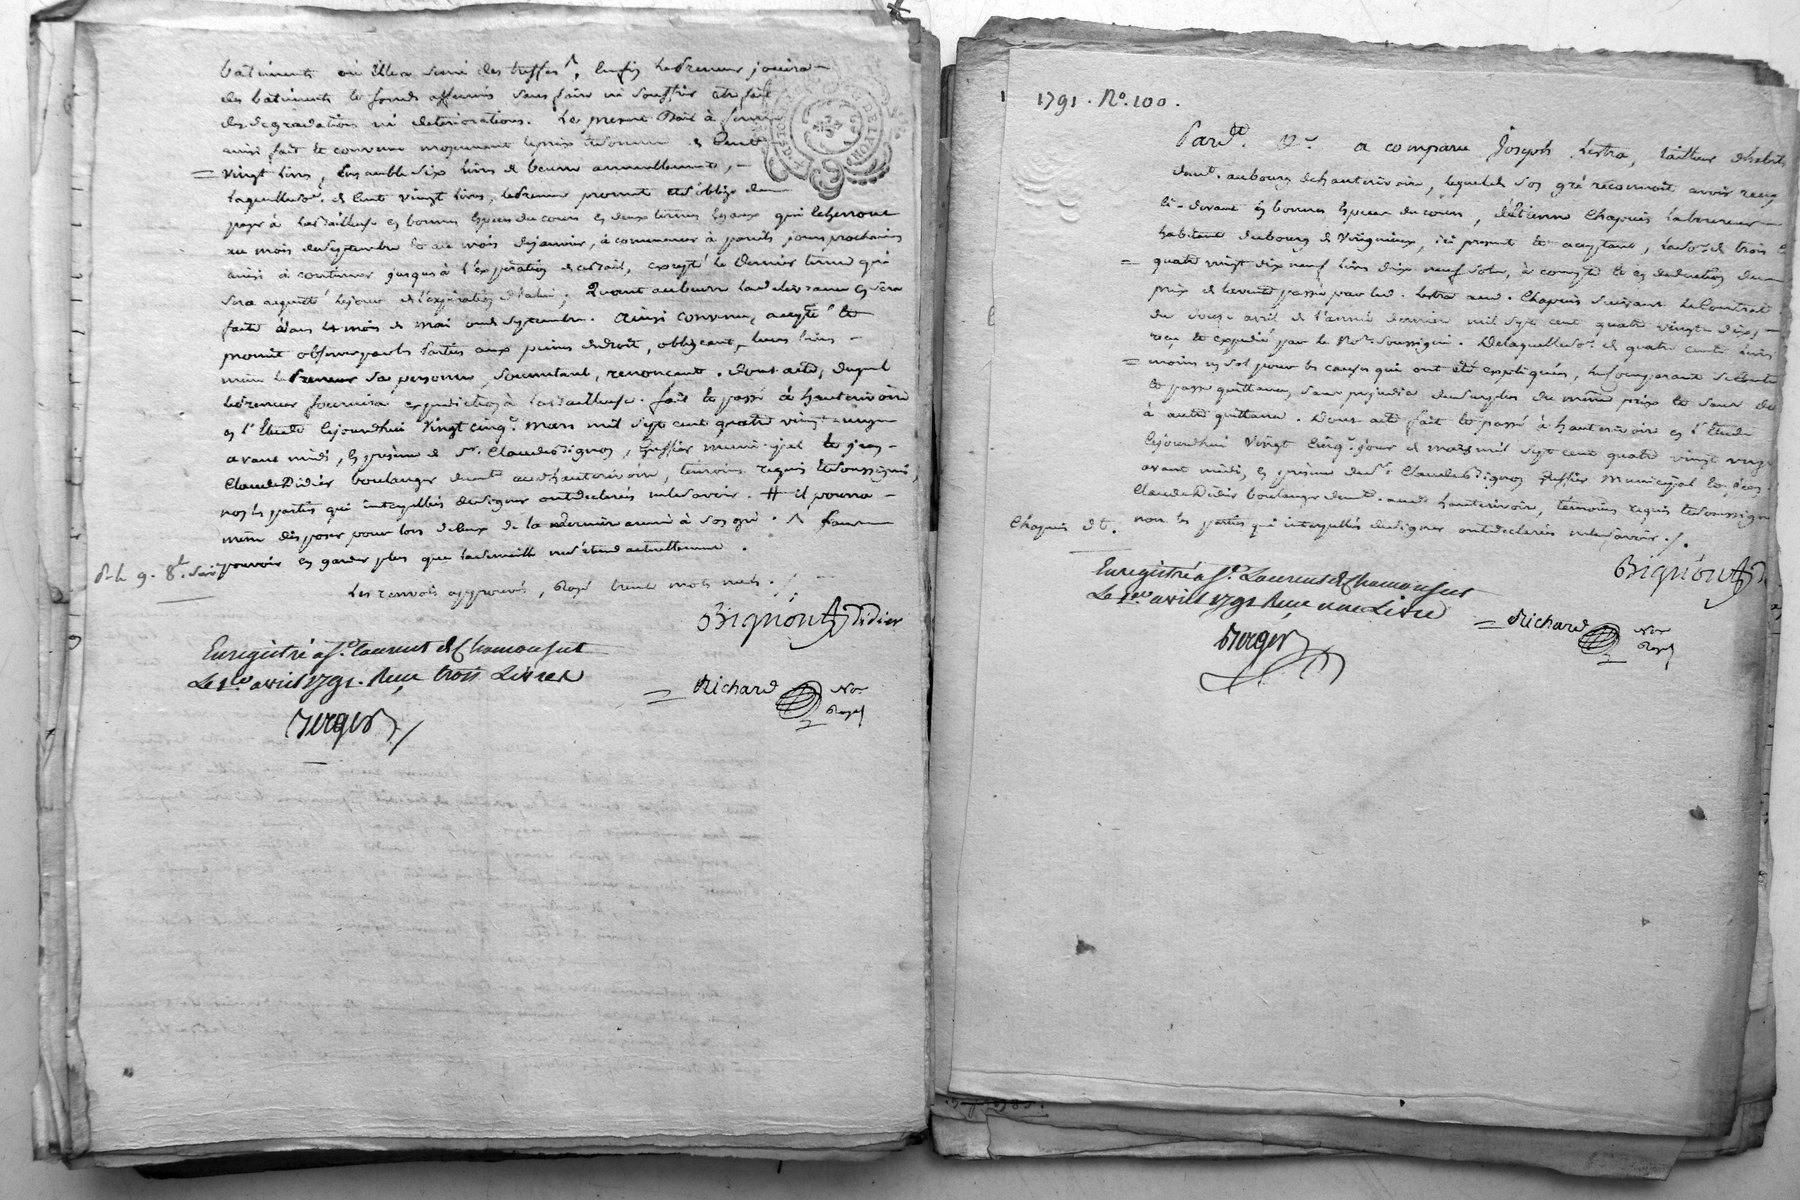 bâtiments où elle a semé des truffes ^. Enfin le preneur jouira
des bâtiments et fonds affermés sans faire ni souffrir être fait
des degradations ni deteriorations. Le present Bail à ferme
ainsi fait et convenu moyennant le prix et somme de cent
vingt livres, Ensemble six livres de beurre annuellement,
laquelle so.e de cent vingt livres, le preneur promet et s'oblige de
payer à la bailleuse en bonnes especes du cours en deux termes egaux qui echerront
au mois de septembre et au mois de janvier, à commencer à pareils jours prochains
ainsi à continuer jusques à l'expiration du bail, excepté le dernier terme qui
sera acquitté le jour de l'expiration. Quant au beurre la delivrance en sera
faite dans le mois de mai ou de septembre. Ainsi convenu, accepté et
promis observer par les parties aux peines de droit, obligeant leurs biens
même le Preneur sa personne, soumettant, renonçant. dont acte, duquel
le preneur fournira expedition à la bailleuse. fait et passé à hauterivoire
en l'Etude cejourdhui vingt cinq. mars mil sept cent quatre vingt onze
avant midi, en presence de Sr. Claude Bignon, Greffier municipal et jean
Claude Didier boulanger demt. aud. hauterivoire, temoins requis et soussignés,
non les parties qui interpellées de signer ont declaré ne le savoir. # il pourra
même disposer pour lors de ceux de la derniere année à son gré. ^ sans
pouvoir en garder plus que la semaille ne s'étend actuellement.
Les renvois approuvés, Rayé trente mots nuls.
Bignon Didier
Enregistré a St. Laurent de Chamousset
Le 1er avril 1791. Reçu trois Livres
Richard Nore
Royal
Berger
1791. No. 100.
Pard.t N.e a comparu Joseph Lestra, tailleur d'habits
demt. au bourg de hauterivoire, lequel de son gré reconnoit avoir reçu
ci-devant en bonnes especes du cours, d'Etienne Chapuis laboureur
habitant du bourg de Virigneux, ici present et acceptant, la so.e de trois cent
quatre vingt dix neuf livres dix neuf sols, à compte et en deduction du
prix de la vente passée par led. Lestra aud. Chapuis suivant le Contrat
du douze avril de l'année derniere mil sept cent quatre vingt dix,
reçu et expedié par le No.re soussigné. De laquelle so.e de quatre cents livres
moins un sol pour les causes qui ont été expliquées, le comparant se contente
et passe quittance, sans prejudice du surplus du même prix et sauf de
à autre quittance. Dont acte fait et passé à hauterivoire en l'Etude
cejourdhui vingt cinq. jour de mars mil sept cent quatre vingt onze
avant midi, en presence de Sr. Claude Bignon Greffier Municipal et jean
Claude Didier boulanger demt. aud. hauterivoire, temoins requis et soussignés
Chapuis dt. non les parties qui interpellées de signer ont declaré ne le savoir.
Bignon
Enregistré a St. Laurent de Chamousset
Le 1er avril 1791 Reçu une Livre
Richard Nore
Royal
Berger